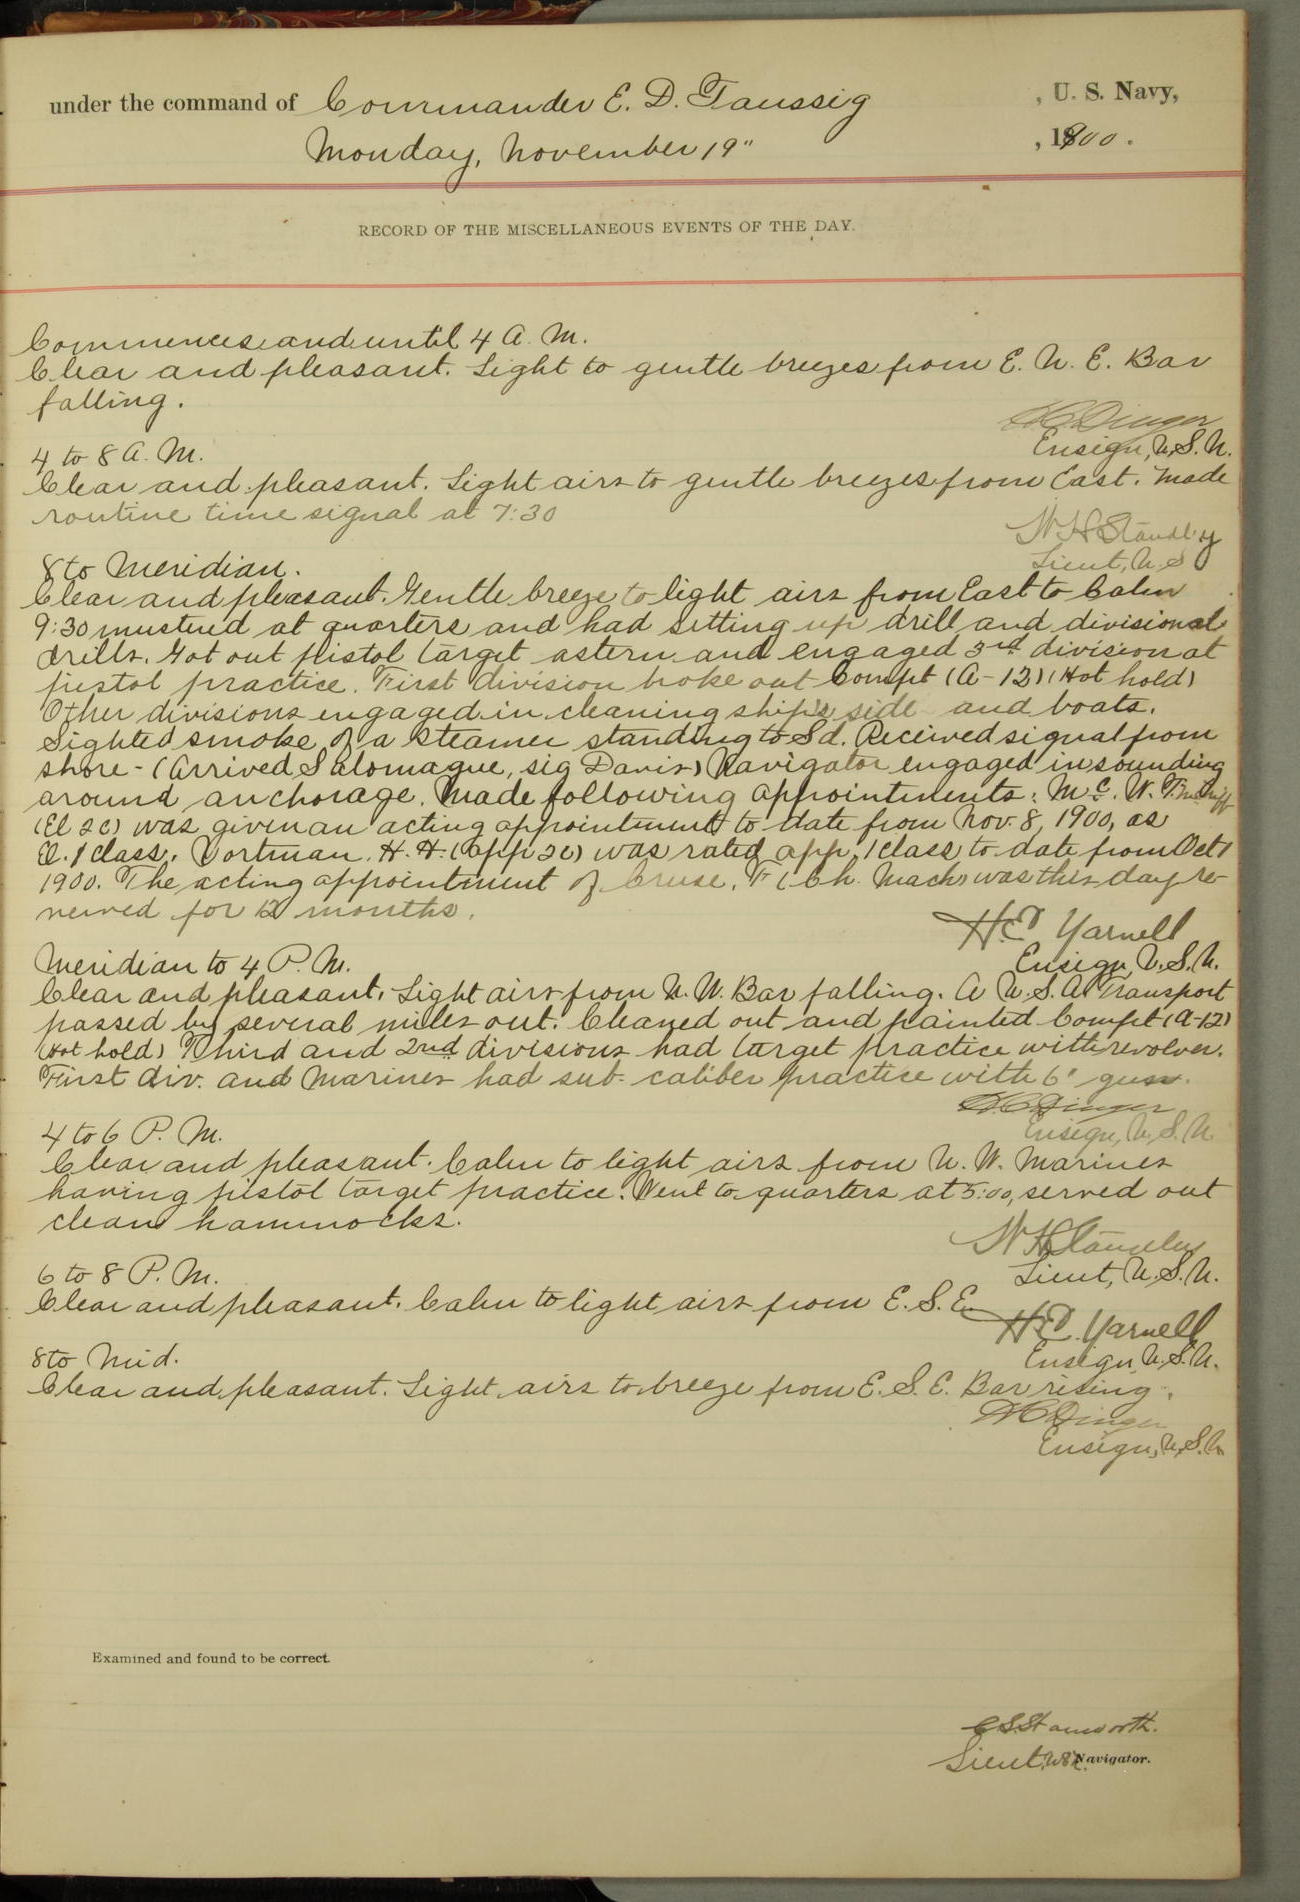 under the command of Commander E. D. Taussig , U. S. Navy,
Monday, November 19" , 1900.
RECORD OF THE MISCELLANEOUS EVENTS OF THE DAY.
Commences and until 4 A. M.
Clear and pleasant. Light to gentle breezes from E. N. E. Bar
falling.
H C Dinger
Ensign, U.S.N.
4 to 8 A. M.
Clear and pleasant. Light airs to gentle breezes from East. Made
routine time signal at 7:30
W H Standley
Lieut, U.S
8 to Meridian.
Clear and pleasant. Gentle breeze to light airs from East to Calm
9:30 mustered at quarters and had setting up drill and divisional
drills. Got out pistol target astern and engaged 3rd division at
pistol practice. First division broke out Compt (A-12) (Hot hold)
Other divisions engaged in cleaning ship's side and boats.
Sighted smoke of a steamer standing to Sd. Received signal from
shore - (Arrived Salomague, sig Davis) Navigator engaged in sounding
around anchorage. Made following appointments: McC. W.
(El 2c) was given an acting appointment to date from Nov. 8, 1900, as
El. 1 class. Vortman. H. H. (app 2c) was rated app. 1 class to date from Oct 1
1900. The acting appointment of Cruse. F (Ch. Mach) was this day re-
newed for 12 months.
H.E. Yarnell
Ensign, U.S.N.
Meridian to 4 P. M.
Clear and pleasant. Light airs from N. W. Bar falling. A U. S. A. Transport
passed by several miles out. Cleaned out and painted Compt (A-12)
(Hot hold) Third and 2nd divisions had target practice with revolver.
First div. and Marines had sub-caliber practice with 6" guns.
H C Dinger
Ensign, U.S.N.
4 to 6 P. M.
Clear and pleasant. Calm to light airs from N. W. Marines
having pistol target practice. Went to quarters at 5:00, served out
clean hammocks.
W H Standley
Lieut, U.S.N.
6 to 8 P. M.
Clear and pleasant. Calm to light airs from E. S. E.
H.E. Yarnell
Ensign U.S.N.
8 to Mid.
Clear and pleasant. Light airs to breeze from E. S. E. Bar rising.
H C Dinger
Ensign, U.S.N
Examined and found to be correct.
C.S. Stanworth.
Lieut. USN. Navigator.